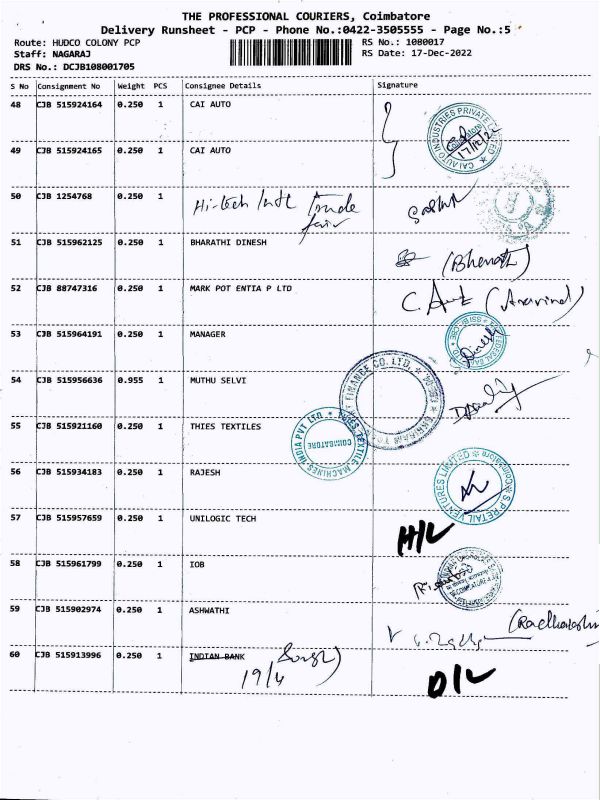 THE PROFESSIONAL COURIERS, Coimbatore
Delivery Runsheet - PCP - Phone No.:0422-3505555 - Page No.:5
Route: HUDCO COLONY PCP RS No.: 1080017
Staff: NAGARAJ RS Date: 17-Dec-2022
DRS No.: DCJB108001705
S No Consignment No Weight PCS Consignee Details Signature
48 CJB 515924164 0.250 1 CAI AUTO
CAI AUTO INDUSTRIES PRIVATE LIMITED 17/12/22
49 CJB 515924165 0.250 1 CAI AUTO
50 CJB 1254768 0.250 1 Hi-tech Intl Trade fair
51 CJB 515962125 0.250 1 BHARATHI DINESH
52 CJB 88747316 0.250 1 MARK POT ENTIA P LTD C. (Aravind)
53 CJB 515964191 0.250 1 MANAGER Dinesh
54 CJB 515956636 0.955 1 MUTHU SELVI
FINANCE CO. LTD.
55 CJB 515921160 0.250 1 THIES TEXTILES
THIES TEXTILE MACHINES INDIA PVT LTD COIMBATORE
56 CJB 515934183 0.250 1 RAJESH
S.P RETAIL VENTURES LIMITED Coimbatore
57 CJB 515957659 0.250 1 UNILOGIC TECH H/L
58 CJB 515961799 0.250 1 IOB
59 CJB 515902974 0.250 1 ASHWATHI
60 CJB 515913996 0.250 1 INDIAN BANK D/L
19/4